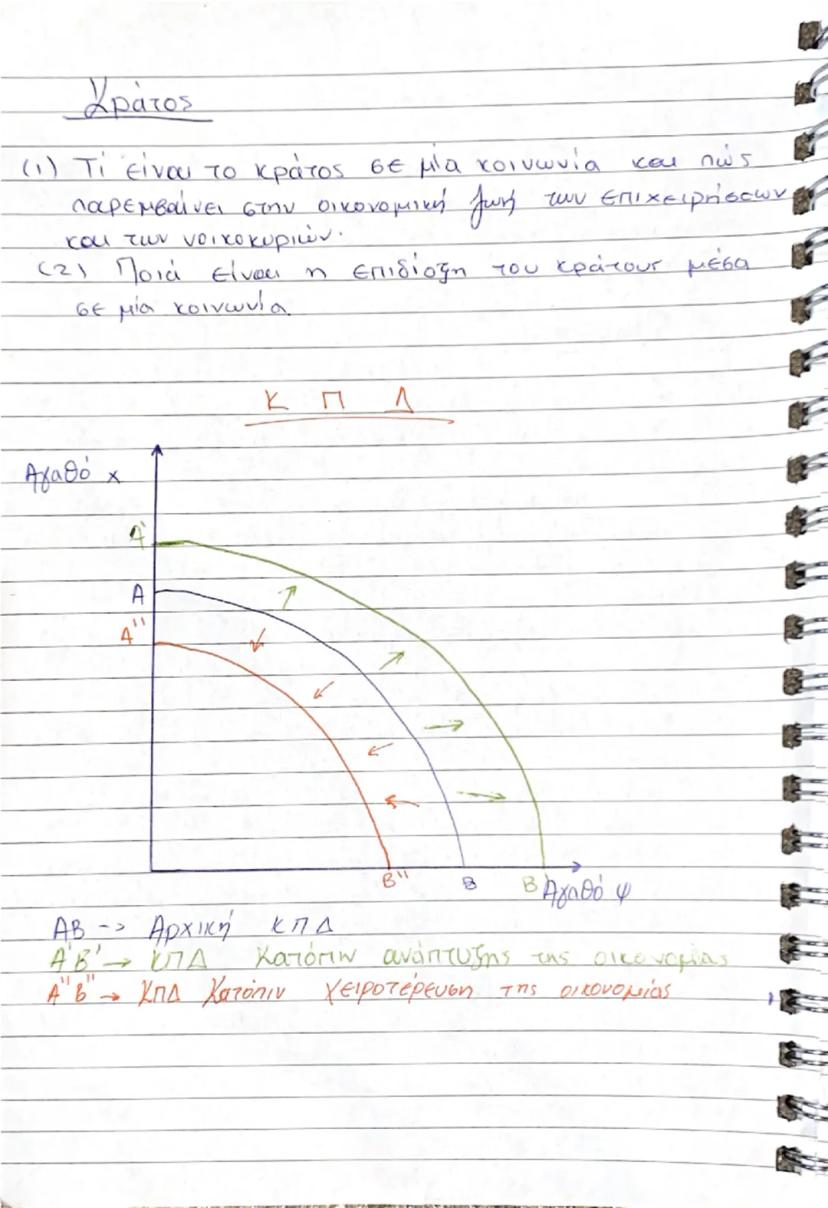 Κράτος
(1) Τί είναι το κράτος σε μία κοινωνία και πώς
παρεμβαίνει στην οικονομική ζωή των επιχειρήσεων
και των νοικοκυριών.
(2) Ποιά είναι η επιδίοξη του κράτους μέσα
σε μία κοινωνία.
Κ Π Δ
Αγαθό x
Α'
Α
Α''
Β'' Β Β' Αγαθό ψ
ΑΒ -> Αρχική ΚΠΔ
Α'Β' → ΚΠΔ Κατόπιν ανάπτυξης της οικονομίας
Α''Β'' → ΚΠΔ Κατόπιν χειροτέρευση της οικονομίας